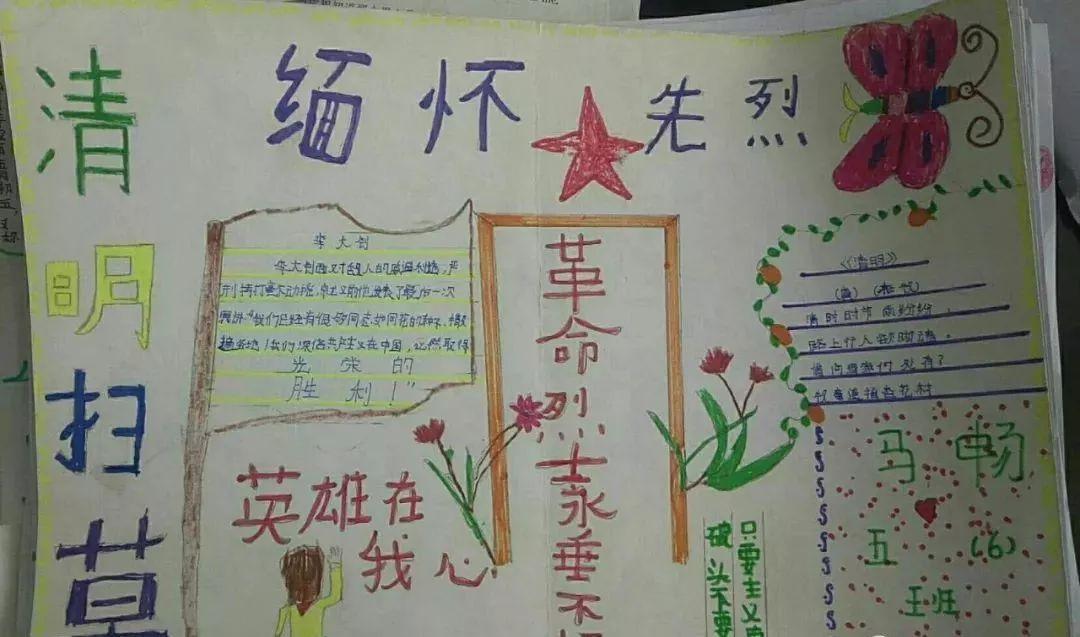 清明扫
缅怀先烈
李大钊
李大钊面对敌人的威逼利诱，严
刑拷打毫不动摇，就义前他发表了最后一次
演讲："我们已经有很多同志如同花的种子，撒
遍各地！我们深信共产主义在中国，必然取得
光荣的
胜利！"
革命烈士永垂不
《清明》
（唐）（杜牧）
清时时节 雨纷纷，
路上行人欲断魂。
借问酒家何处有？
牧童遥指杏花村
英雄在
我心
头不要
只要主义
马畅
五（6）
班